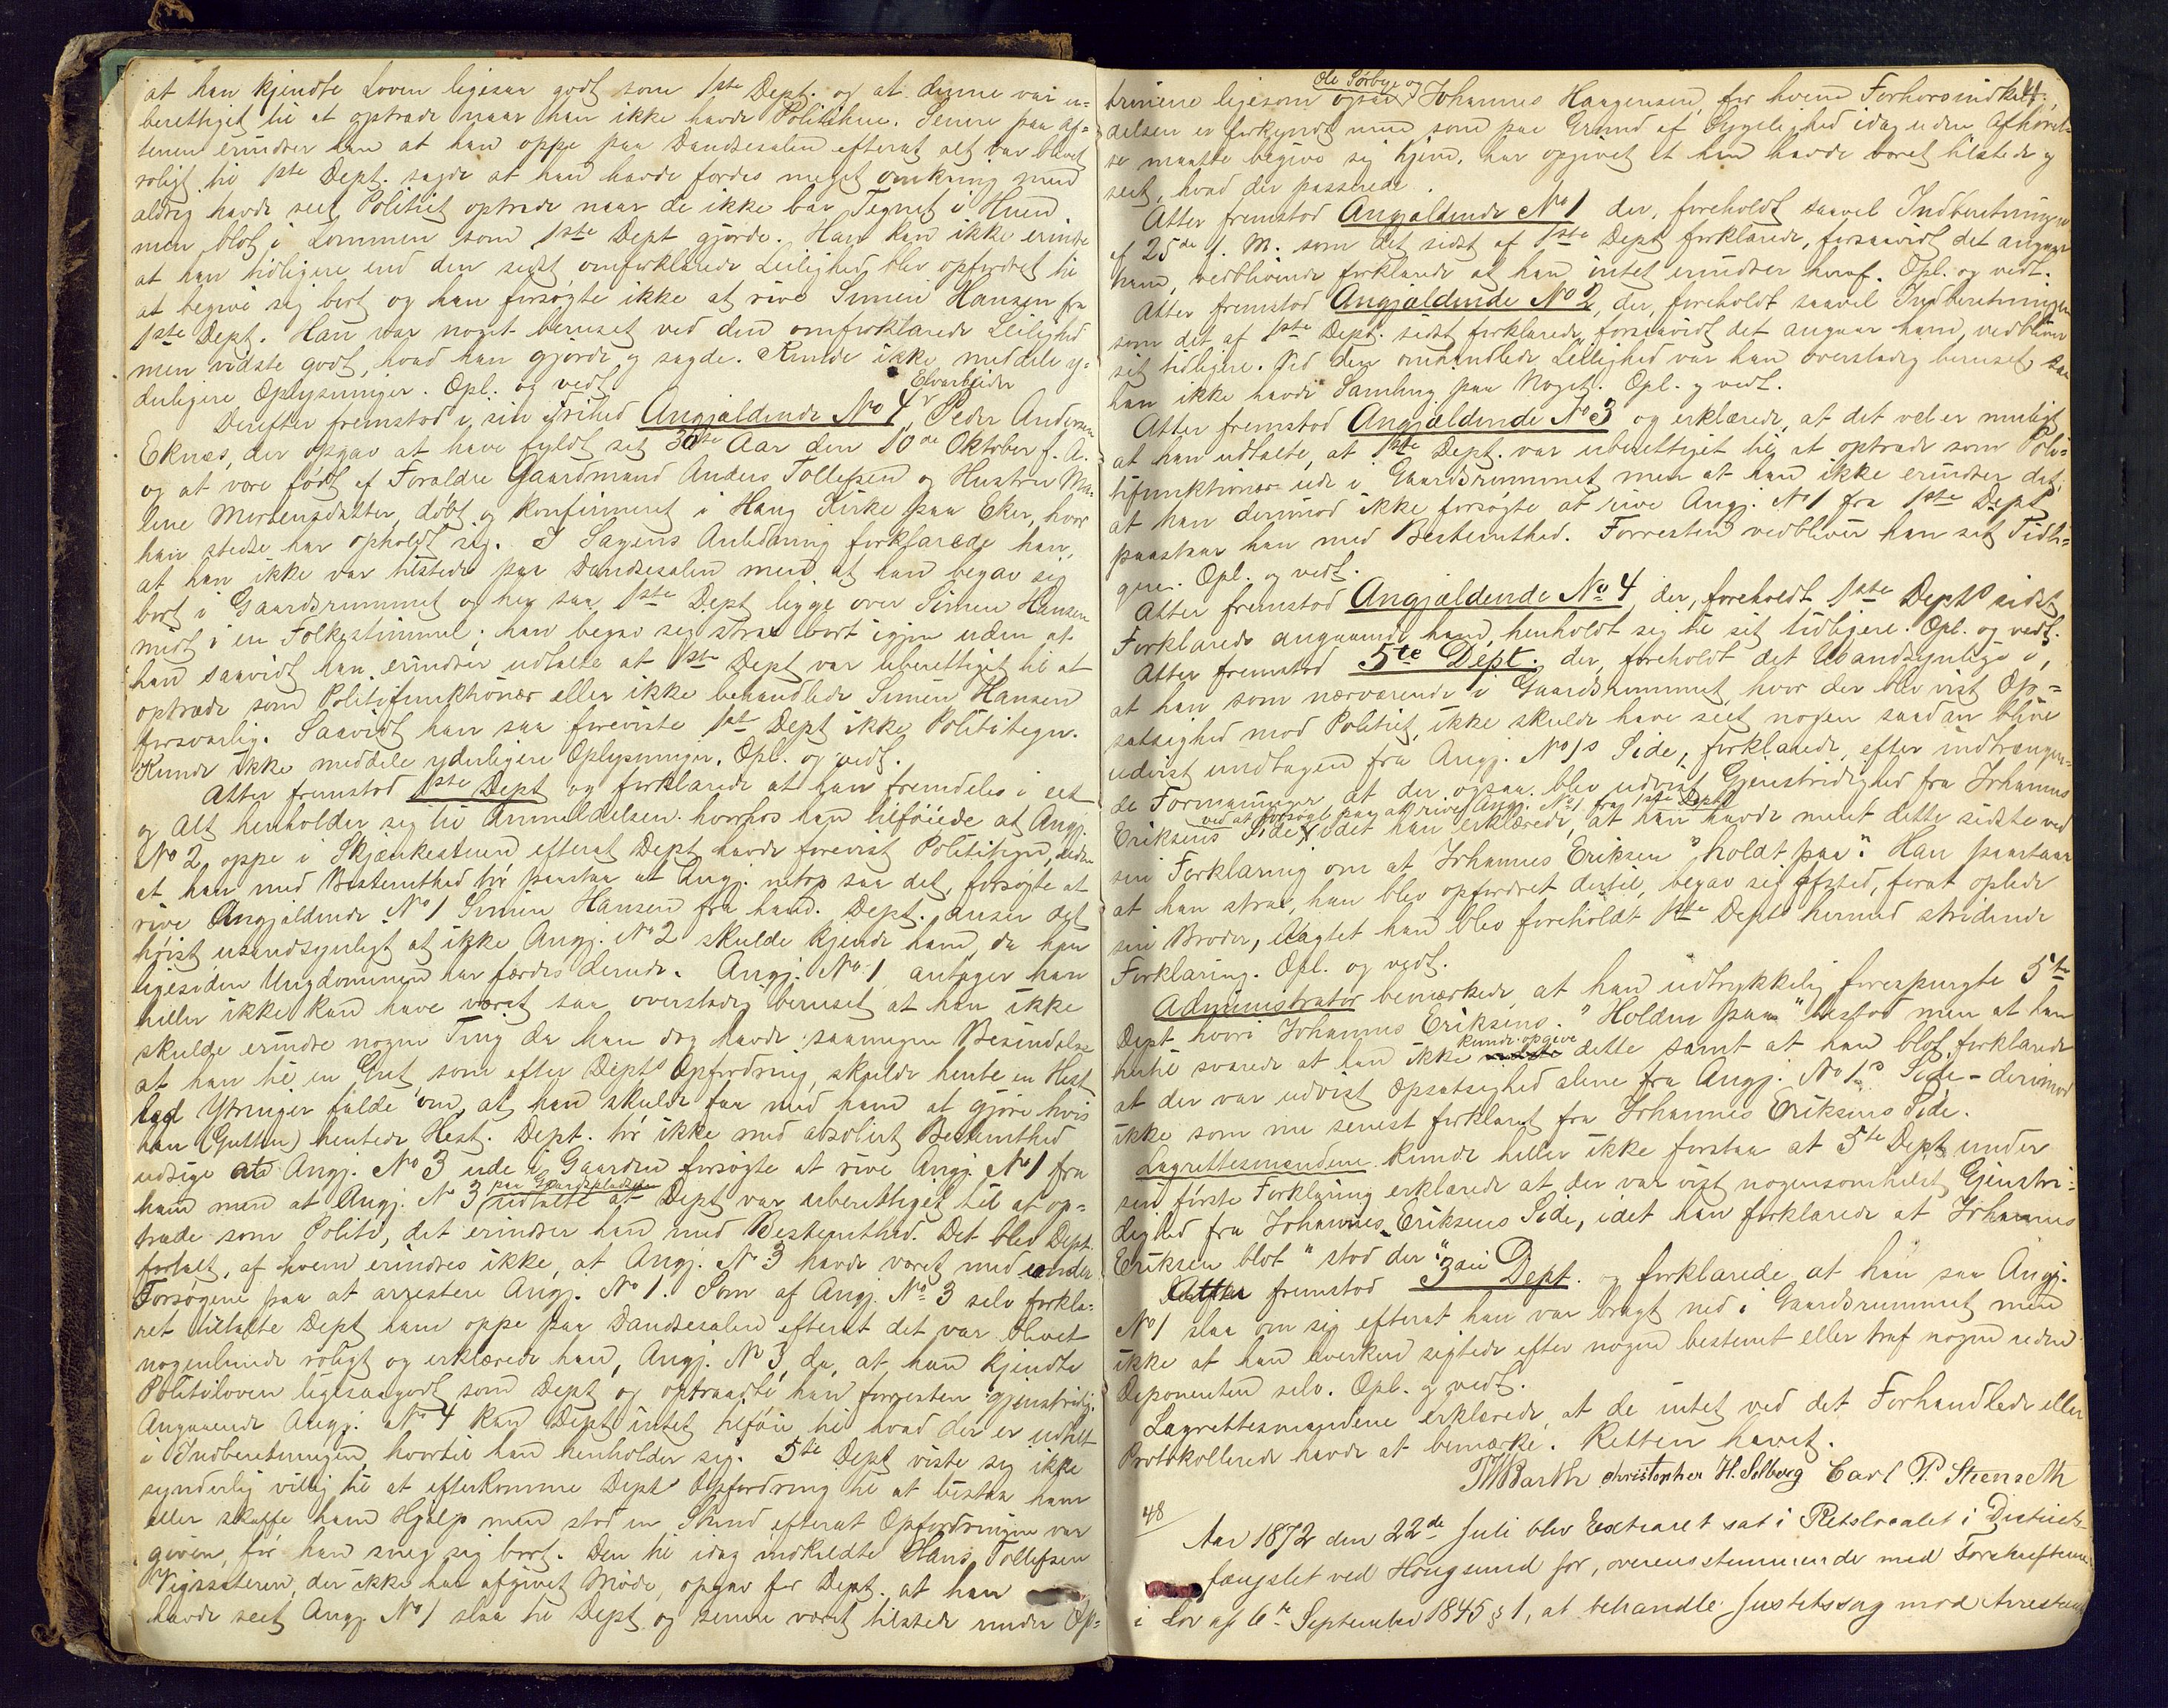 at han kjendte Loven ligesaa godt som 1ste Dept. og at denne var u-
berettiget til at optræde naar han ikke havde Politihue. Senere paa Af-
tenen erindrer han at han oppe paa Dandsesalen efterat alt var blevet
roligt til 1ste Dept. sagde at han havde færdes meget omkring men
aldrig havde seet Politiet optræde naar de ikke bar Tegnet i Huen
men blot i Lommen som 1ste Dept gjorde. Han kan ikke erindre
at han tidligere end den sidst omforklarede Leilighed blev opfordret til
at begive sig bort og han forsøgte ikke at rive Simen Hansen fra
1ste Dept. Han var noget beruset ved den omforklarede Leilighed
men vidste godt, hvad han gjorde og sagde. Kunde ikke meddele y-
derligere Oplysninger. Opl. og vedt.
Elvarbeider
Derefter fremstod i sin Frihed Angjældende No 4, Peder Andersen
Eknæs, der opgav at have fyldt sit 30te Aar den 10de Oktober f. A.
og at være født af Forældre Gaardmand Anders Tollefsen og Hustru Ma-
lene Mortensdatter, døbt og konfirmeret i Haug Kirke paa Eker, hvor
han stedse har opholdt sig. I Sagens Anledning forklarede han,
at han ikke var tilstede paa Dandsesalen men at han begav sig
bort i Gaardsrummet og her saa 1ste Dept ligge over Simen Hansen
midt i en Folkestimmel; han begav sig strax bort igjen uden at
han saavidt han erindrer udtalte at 1ste Dept var uberettiget til at
optræde som Politifunktionær eller ikke behandlede Simen Hansen
forsvarlig. Saavidt han saa foreviste 1ste Dept ikke Polititegn.
Kunde ikke meddele yderligere Oplysninger. Opl. og vedt.
Atter fremstod 1ste Dept og forklarede at han fremdeles i eet
og Alt henholder sig til Anmeldelsen hvorhos han tilføiede at Angj.
No 2, oppe i Skjænkestuen efterat Dept havde forevist Politihuen, uden
at han med Bestemthed tør paastaa at Angj. netop saa det, forsøgte at
rive Angjældende No 1 Simen Hansen fra ham. Dept. anser det
høist usandsynligt at ikke Angj. No 2 skulde kjende ham, da han
ligesiden Ungdommen har færdes derude. Angj. No 1 antager han
heller ikke kan have været saa overstadig beruset at han ikke
skulde erindre nogen Ting da han dog havde saamegen Besindelse
at han til en Gut, som efter Depts Opfordring skulde hente en Hest
lod Ytringer falde om, at han skulde faa med ham at gjøre hvis
han (Gutten) hentede Hest. Dept. tør ikke med absolut Bestemthed
udsige at Angj. No 3 ude i Gaarden forsøgte at rive Angj. No 1 fra
paa Gaardspladsen
ham men at Angj. No 3 udtalte at Dept var uberettiget til at op-
træde som Politi, det erindrer han med Bestemthed. Det blev Dept.
fortalt, af hvem erindres ikke, at Angj. No 3 havde været med under
Forsøgene paa at arrestere Angj. No 1. Som af Angj. No 3 selv forkla-
ret udtalte Dept ham oppe paa Dandsesalen efterat det var blevet
nogenlunde roligt og erklærede han, Angj. No 3, da, at han kjendte
Politiloven ligesaagodt som Dept og optraadte han forresten gjenstridig.
Angaaende Angj. No 4 kan Dept intet tilføie til hvad der er udtalt
i Indberetningen, hvortil han henholder sig. 5te Dept viste sig ikke
synderlig villig til at efterkomme Depts Opfordring til at bistaa ham
eller skaffe ham Hjælp men stod en Stund efterat Opfordringen var
given, før han sneg sig bort. Den til idag indkaldte Hans Tollefsen
Vigssæteren, der ikke har afgivet Møde, opgav for Dept. at han
havde seet Angj. No 1 slaa til Dept og senere været tilstede under Op-
Ole Sørbye og
trinene ligesom ogsaa Johannes Haagensen, for hvem Forhørsindkal-
delsen er forkyndt men som paa Grund af Sygelighed idag uden Afhørel-
se maatte begive sig hjem, har opgivet at han havde været tilstede og
seet, hvad der passerede.
Atter fremstod Angjældende No 1 der, foreholdt saavel Indberetningen
af 25de f. M. som det sidst af 1ste Dept forklarede, forsaavidt det angaar
ham, vedblivende forklarede at han intet erindrer heraf. Opl. og vedt.
Atter fremstod Angjældende No 2, der, foreholdt saavel Indberetningen
som det af 1ste Dept. sidst forklarede, forsaavidt det angaar ham, vedbliver
sit tidligere. Ved den omhandlede Leilighed var han overstadig beruset, saa
han ikke havde Samling paa Noget. Opl. og vedt.
Atter fremstod Angjældende No 3 og erklærede, at det vel er muligt
at han udtalte, at 1ste Dept. var uberettiget til at optræde som Poli-
tifunktionær ude i Gaardsrummet men at han ikke erindrer det;
at han derimod ikke forsøgte at rive Angj. No 1 fra 1ste Dept
paastaar han med Bestemthed. Forresten vedbliver han sit Tidli-
gere. Opl. og vedt.
Atter fremstod Angjældende No 4 der, foreholdt 1ste Depts sidst
Forklarede angaaende ham, henholdt sig til sit tidligere. Opl. og vedt.
Atter fremstod 5te Dept. der, foreholdt det Usandsynlige i,
at han som nærværende i Gaardsrummet, hvor der blev vist Op-
satsighed mod Politiet, ikke skulde have seet nogen saadan blive
udvist undtagen fra Angj. No 1s Side, forklarede, efter indtrængen-
de Formaninger, at der ogsaa blev udvist Gjenstridighed fra Johannes
ved at forsøge paa at rive Angj. No 1 fra 1ste Dept
Eriksens Side, idet han erklærede, at han havde ment dette sidste ved
sin Forklaring om at Johannes Eriksen "holdt paa". Han paastaar
at han strax, han blev opfordret dertil, begav sig afsted, forat oplede
sin Broder, uagtet han blev foreholdt 1ste Depts hermed stridende
Forklaring. Opl. og vedt.
Administrator bemærkede, at han udtrykkelig forespurgte 5te
Dept hvori Johannes Eriksens "Holden paa" bestod men at han
kunde opgive
hertil svarede at han ikke dette samt at han blot forklarede
at der var udvist Opsatsighed alene fra Angj. No 1s Side - derimod
ikke som nu senest forklaret fra Johannes Eriksens Side.
Lagrettesmændene kunde heller ikke forstaa at 5te Dept under
sin første Forklaring erklærede at der var vist nogensomhelst Gjenstri-
dighed fra Johannes Eriksens Side, idet han forklarede at Johannes
Eriksen blot "stod der".
Atter fremstod 3die Dept. og forklarede at han saa Angj.
No 1 slaa om sig efterat han var bragt ned i Gaardsrummet men
ikke at han hverken sigtede efter nogen bestemt eller traf nogen uden
Deponenten selv. Opl. og vedt.
Lagrettesmændene erklærede, at de intet ved det Forhandlede eller
Protokollerede havde at bemærke. Retten hævet.
Th Barth Christopher H. Solberg Carl P. Steenseth
48
Aar 1872 den 22de Juli blev Extraret sat i Retslocalet i Districts-
fængslet ved Hougsund for, overensstemmende med Forskrifterne
i Lov af 6te September 1845 § 1, at behandle Justitssag mod Arrestant